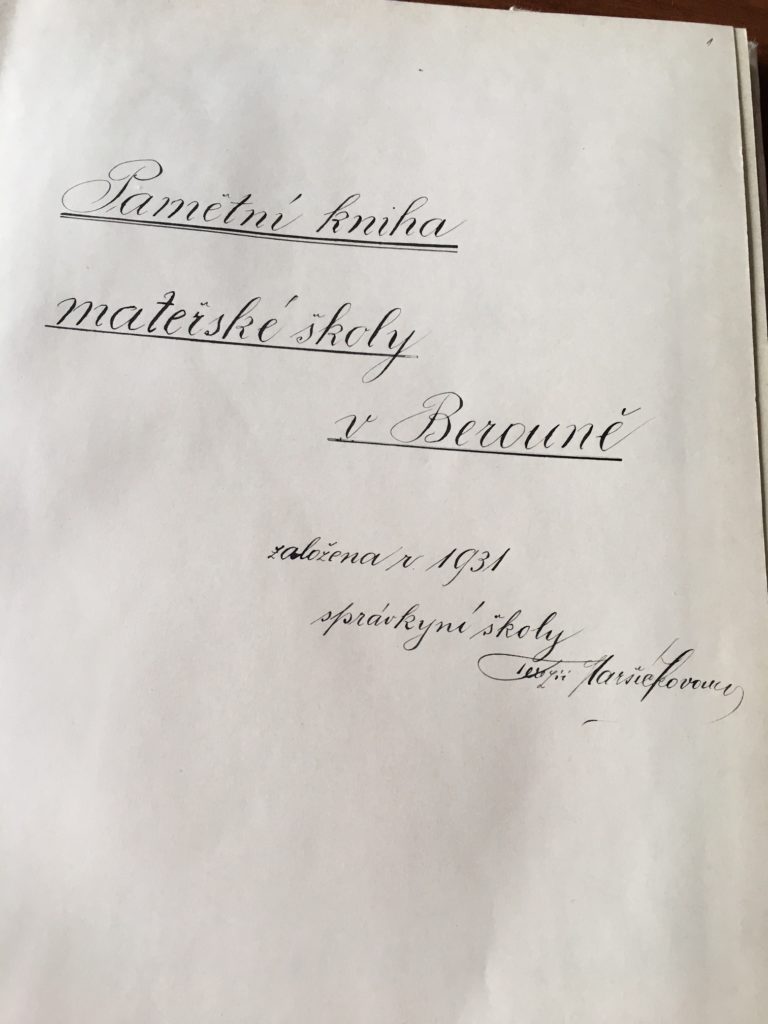 1
Pamětní kniha
mateřské školy
v Berouně
založena r. 1931
správkyní školy